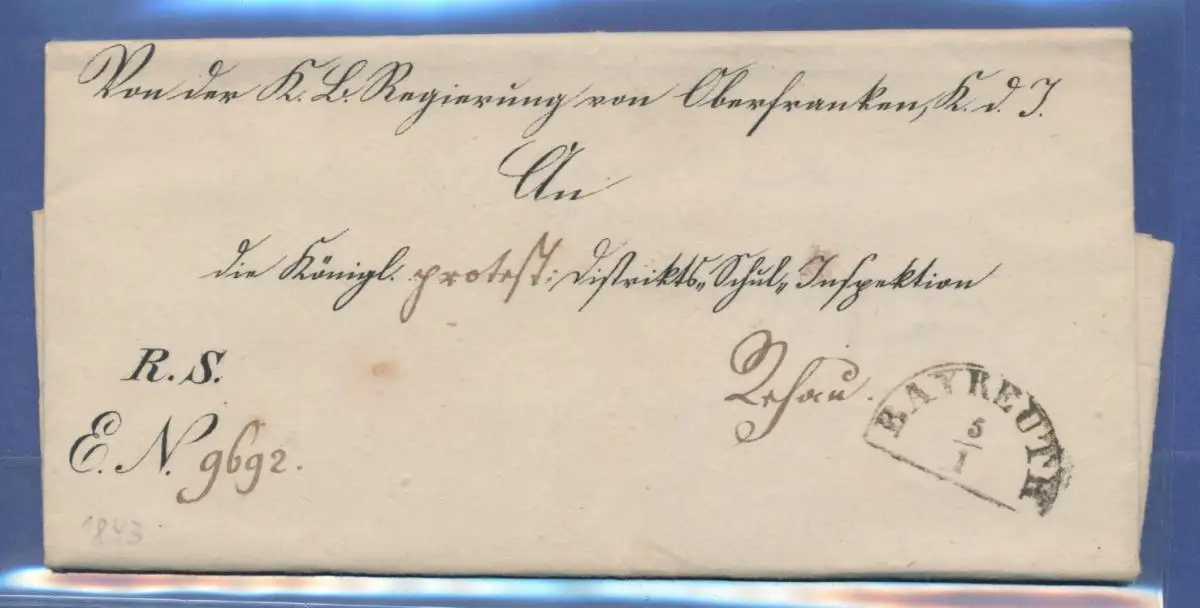 Von der K. B. Regierung von Oberfranken, K. d. I.
An
die Königl. protest: Distrikts„ Schul„ Inspektion
Rehau.
R. S.
E. N. 9692.
BAYREUTH
5
1
1843